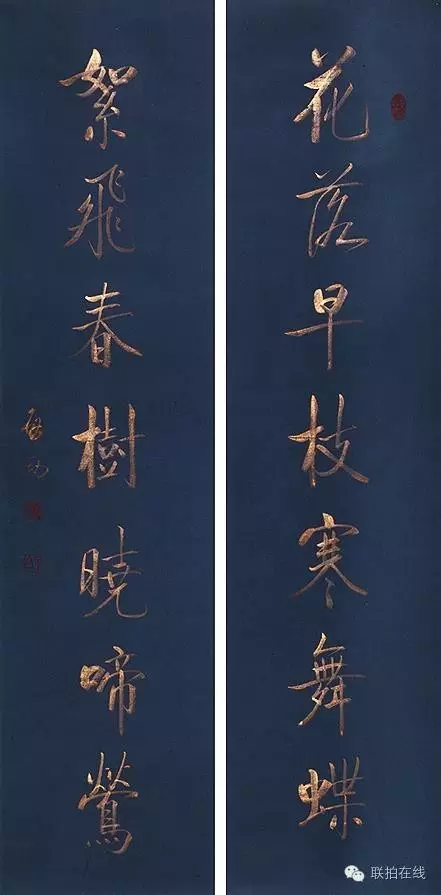 花落早枝寒舞蝶
絮飛春樹曉啼鶯
啟功
联拍在线